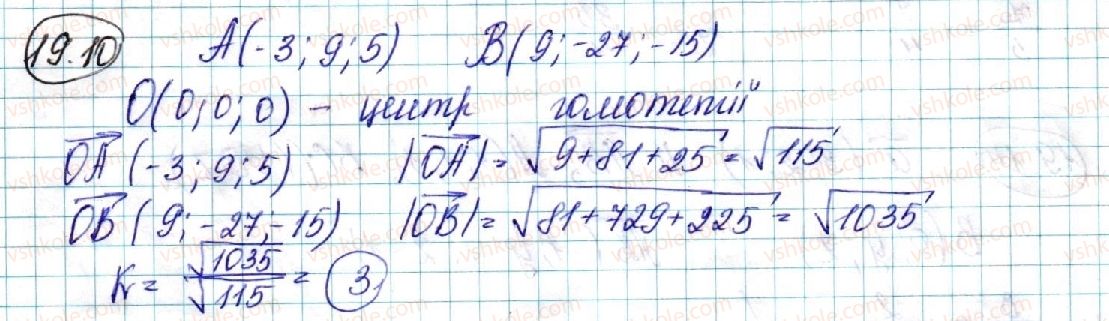 19.10 A(-3; 9; 5) B(9; -27; -15)
O(0; 0; 0) – центр гомотетії
OA⃗ (-3; 9; 5) |OA⃗| = √(9+81+25) = √115
OB⃗ (9; -27; -15) |OB⃗| = √(81+729+225) = √1035
K = √1035/√115 = 3